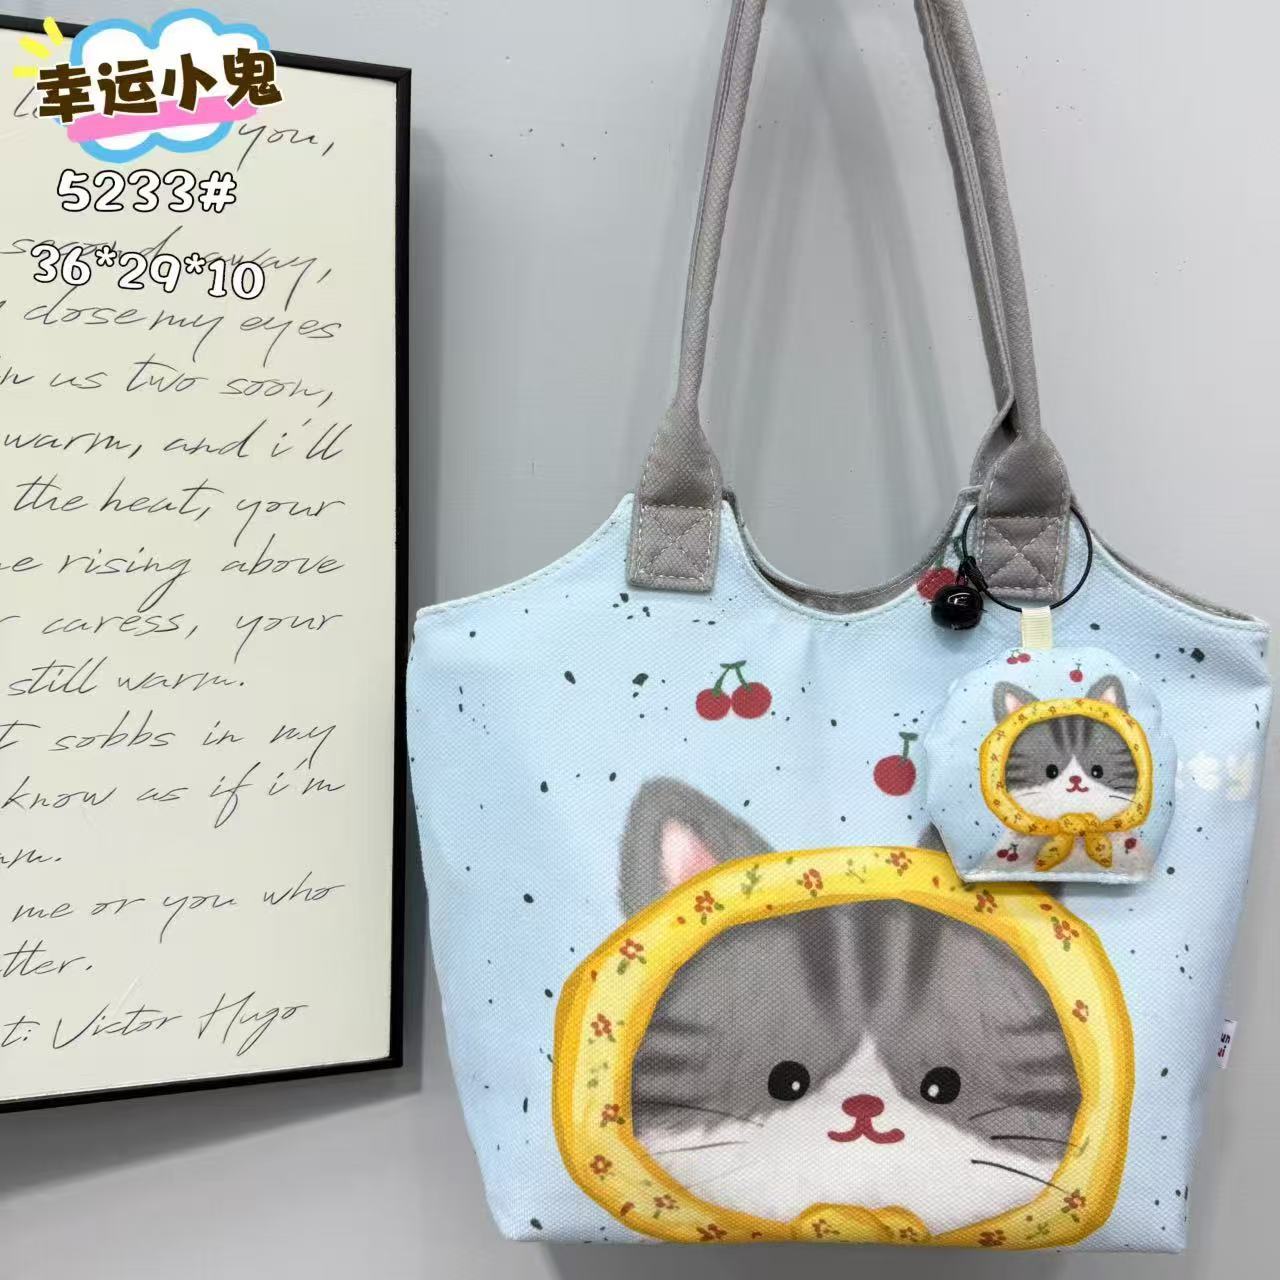 幸运小鬼
5233#
36*29*10
you,
second away,
close my eyes
us two soon,
warm, and i'll
the heat, your
rising above
caress, your
still warm.
sobbs in my
know as if i'm
me or you who
Victor Hugo
ty
un
ui